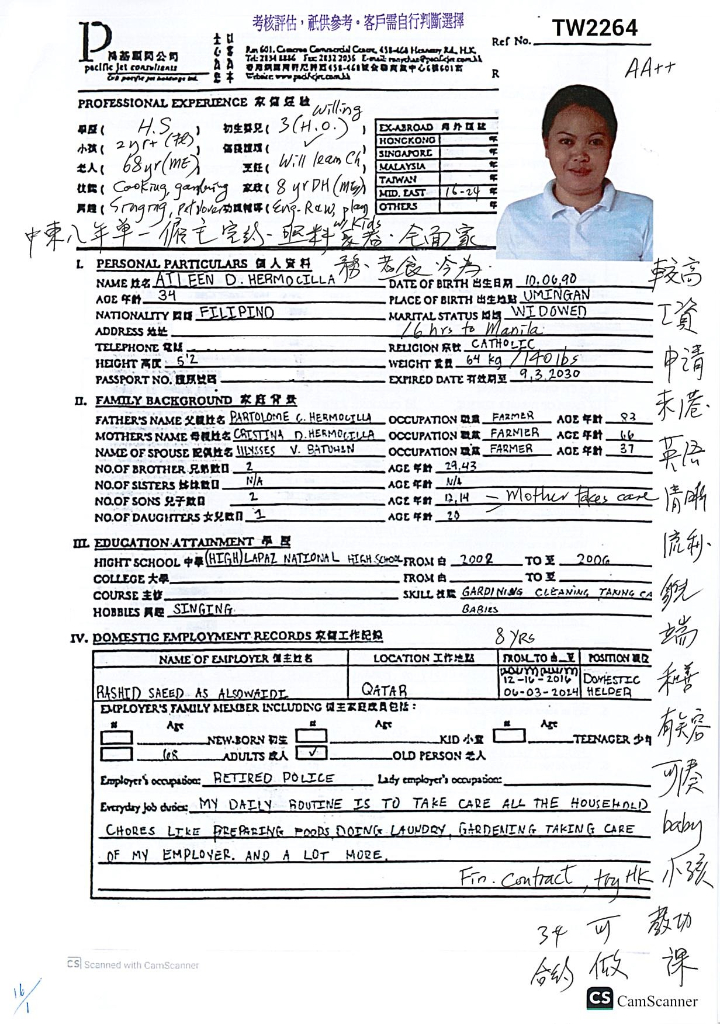 考核評估，祇供參考。客戶需自行判斷選擇
Ref No. TW2264
pacific jet consultants
Rm 601, Cameron Commercial Centre, 458-468 Hennessy Rd., H.K.
AA++
PROFESSIONAL EXPERIENCE 家傭經驗
Willing
學歷 ( H.S ) 初生嬰兒 ( 3 (H.O.) )
小孩 ( 2yr+ )
老人 ( 68yr (ME) ) 烹飪 ( Will learn Ch )
技能 ( Cooking, gardening 家政 ( 8yr DH (ME)
興趣 ( Singing, Eng. Raw, play
w/ Kids
EX-ABROAD 海外經驗
HONGKONG 年
SINGAPORE 年
MALAYSIA 年
TAIWAN 年
MID. EAST 16-24 年
OTHERS 年
I. PERSONAL PARTICULARS 個人資料
NAME 姓名 AILEEN D. HERMOCILLA DATE OF BIRTH 出生日期 10.06.90
AGE 年齡 34 PLACE OF BIRTH 出生地點 UMINGAN
NATIONALITY 國籍 FILIPINO MARITAL STATUS 婚姻 WIDOWED
ADDRESS 地址 6 hrs to Manila
TELEPHONE 電話 RELIGION 宗教 CATHOLIC
HEIGHT 高度 5'2 WEIGHT 體重 64 kg / 140 lbs
PASSPORT NO. 護照號碼 EXPIRED DATE 有效日至 9.3.2030
II. FAMILY BACKGROUND 家庭背景
FATHER'S NAME 父親姓名 BARTOLOME C. HERMOCILLA OCCUPATION 職業 FARMER AGE 年齡 83
MOTHER'S NAME 母親姓名 CRISTINA D. HERMOCILLA OCCUPATION 職業 FARMER AGE 年齡 66
NAME OF SPOUSE 配偶姓名 ULYSSES V. OCCUPATION 職業 FARMER AGE 年齡 37
NO.OF BROTHER 兄弟數目 2 AGE 年齡 29,43
NO.OF SISTERS 姊妹數目 N/A AGE 年齡 N/A
NO.OF SONS 兒子數目 2 AGE 年齡 12,14 Mother takes care
NO.OF DAUGHTERS 女兒數目 1 AGE 年齡 20
III. EDUCATION ATTAINMENT 學歷
HIGHT SCHOOL 中學 (HIGH) LAPAZ NATIONAL HIGH SCHOOL FROM 由 2002 TO 至 2006
COLLEGE 大學 FROM 由 TO 至
COURSE 主修 SKILL 技能 GARDINING CLEANING TAKING CA
HOBBIES 興趣 SINGING BABIES
IV. DOMESTIC EMPLOYMENT RECORDS 家傭工作紀錄 8 YRS
NAME OF EMPLOYER 僱主姓名 LOCATION 工作地點 FROM TO 由 至 POSITION 職位
RASHID SAEED AS ALSOWAIDI QATAR 12-16-2016 06-03-2024 DOMESTIC HELDER
EMPLOYER'S FAMILY MEMBER INCLUDING 僱主家庭成員包括：
# Age # Age # Age
NEW-BORN 初生 KID 小童 TEENAGER 少年
68 ADULTS 成人 ✓ OLD PERSON 老人
Employer's occupation: RETIRED POLICE Lady employer's occupation:
Everyday job duties: MY DAILY ROUTINE IS TO TAKE CARE ALL THE HOUSEHOLD
CHORES LIKE PREPARING FOODS DOING LAUNDRY, GARDENING TAKING CARE
OF MY EMPLOYER. AND A LOT MORE.
Fin. Contract, try HK
較高
工資
申請
來港
英語
清晰
流利
端
和善
有笑容
可湊
baby
小孩
教功
課
可
做
34
合約
16/1
CS Scanned with CamScanner
CS CamScanner